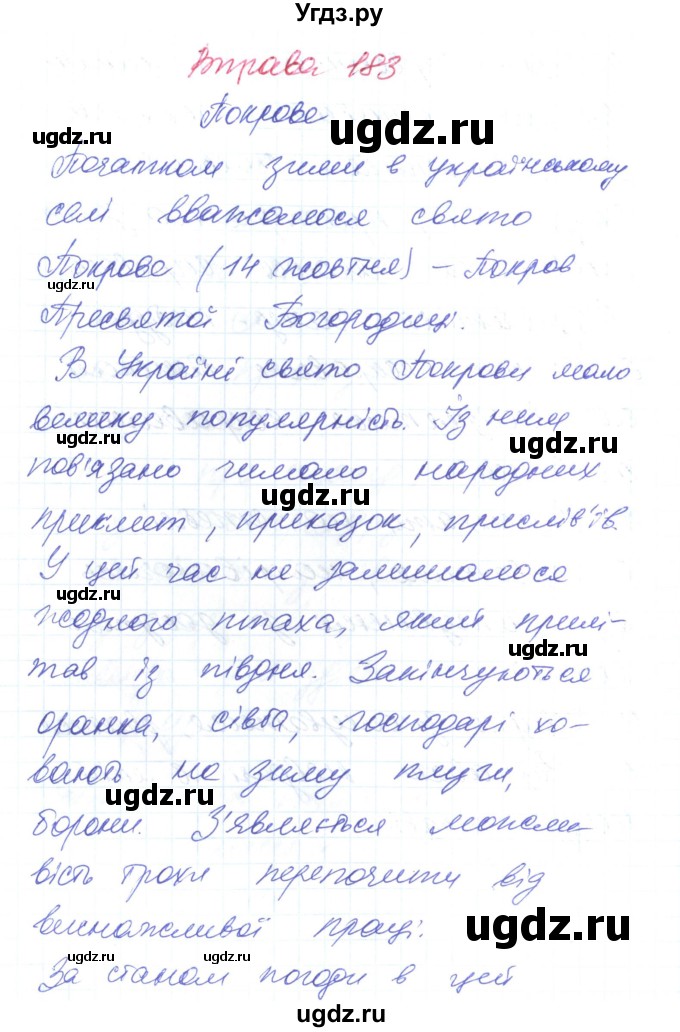 Угдз.ру
Вправа 183
Покрова
ugdz.ru
ugdz.ru
Початком зими в українському
селі вважалося свято
Покрова (14 жовтня) – Покров
ugdz.ru
ugdz.ru
Пресвятої Богородиці.
В Україні свято Покрови мало
велику популярність. Із ним
ugdz.ru
ugdz.ru
пов'язано чимало народних
ugdz.ru
прикмет, приказок, прислів'їв.
У цей час не залишалося
ugdz.ru
жодного птаха, який прилі-
ugdz.ru
тав із півдня. Закінчуються
оранка, сівба, господарі хо-
вають на зиму плуги,
ugdz.ru
борони. З'являється можли-
вість трохи перепочити від
виснажливої праці.
ugdz.ru
ugdz.ru
ugdz.ru
За станом погоди в цей
ugdz.ru